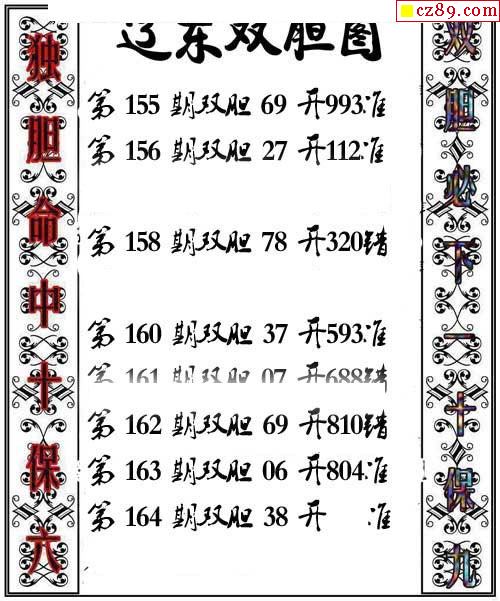 cz89.com
辽东双胆图
独胆命中十保六
第 155 期双胆 69 开993准
第 156 期双胆 27 开112准
第 158 期双胆 78 开320错
第 160 期双胆 37 开593准
第 161 期双胆 07 开688错
第 162 期双胆 69 开810错
第 163 期双胆 06 开804准
第 164 期双胆 38 开 准
双胆必下一十保九